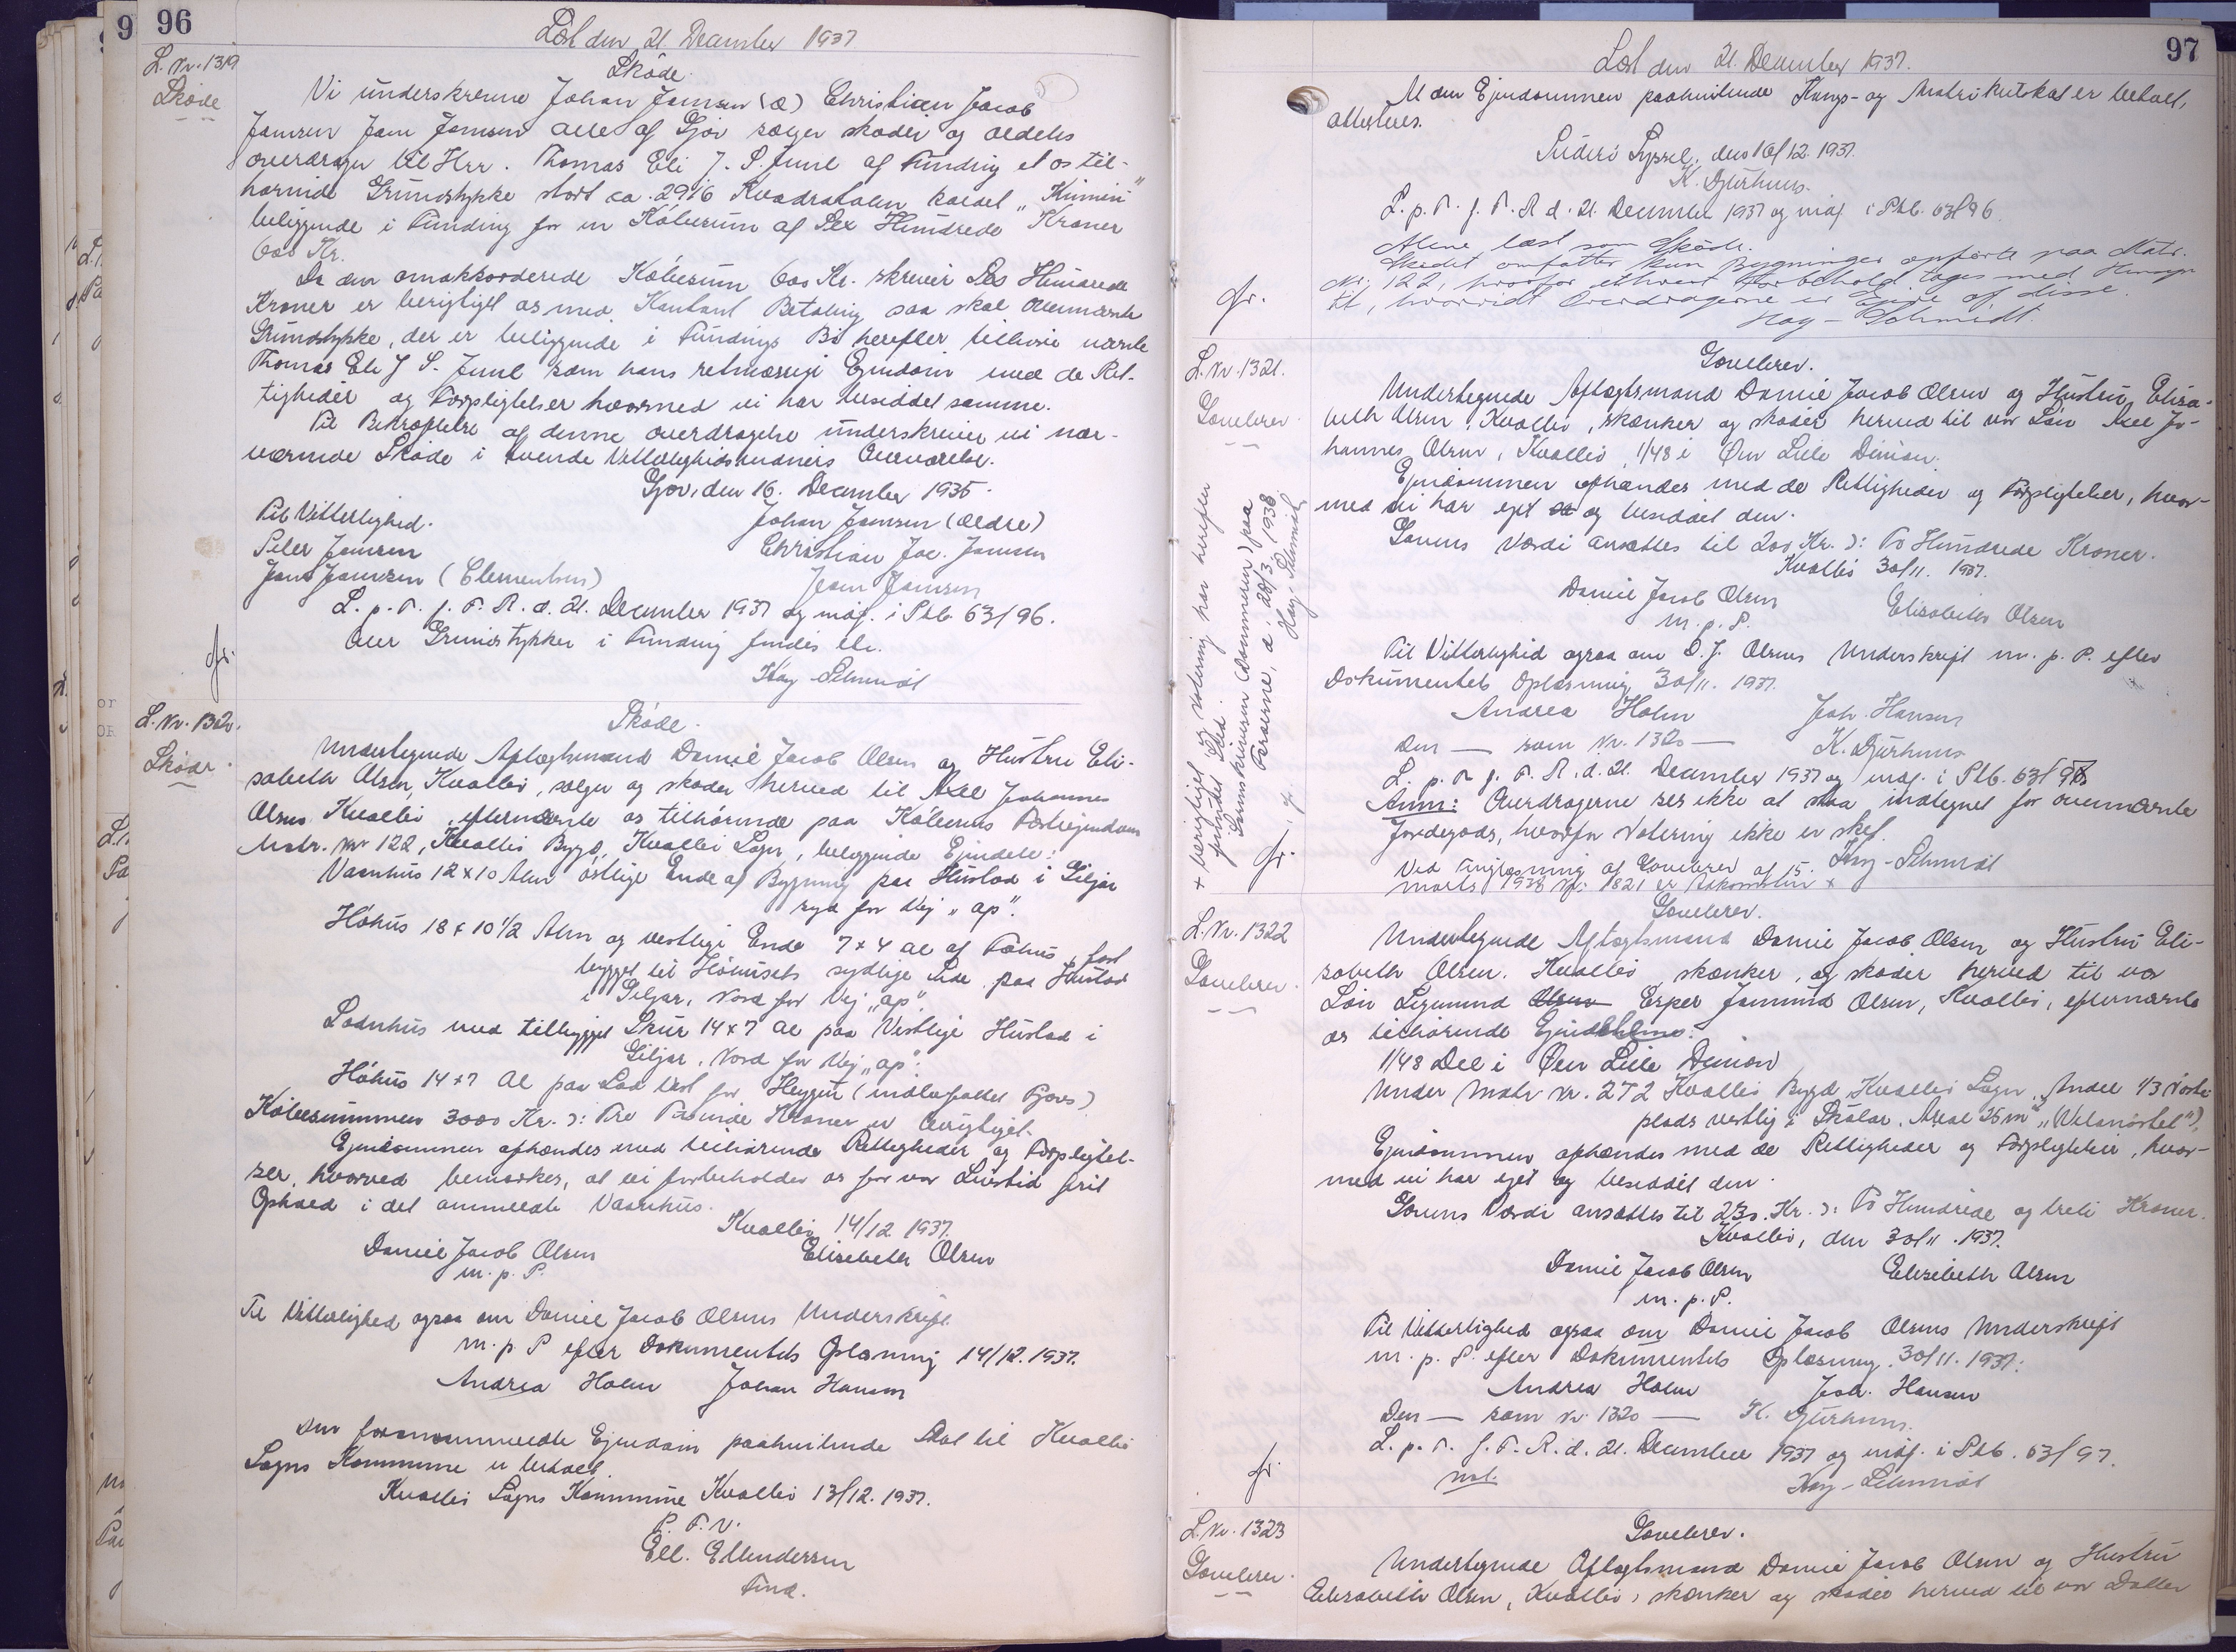 96
Læst den 21 December 1937
L. Nr. 1319
Skøde
Skøde.
Vi underskrevne Johan Joensen (æ) Christian Jacob
Joensen Joen Joensen alle af Gjov sælger skøder og aldeles
overdrager til Hrr. Thomas Eli J. S. Juul af Funding et os til-
hørende Grundstykke stort ca. 2916 Kvadratalen kaldet „
beliggende i Funding for en Købesum af Sex Hundrede Kroner
600 Kr.
Da den omakkorderede Købesum 600 Kr. skriver Sex Hundrede
Kroner er berigtiget os med Kontant Betaling saa skal ovennævnte
Grundstykke, der er beliggende i Fundings Bø herefter tilhøre nævnte
Thomas Eli J S. Juul som hans retmæssige Ejendom med de Ret-
tigheder og Forpligtelser hvormed vi har besiddet samme.
Til Bekræftelse af denne overdragelse underskriver vi nær-
værende Skøde i tvende Vitterlighedsvidners Overværelse.
Gjov, den 16. December 1935.
Til Vitterlighed. Johan Joensen (ældre)
Peter Joensen Christian Jac. Joensen
Jens Joensen (Clementsen) Joen Joensen
L. p. T. f. F. R. d. 21. December 1937 og indf. i Ptb. 63/96.
Over Grundstykker i Funding findes
Kay-Schmidt
L. Nr. 1320.
Skøde.
Skøde.
Undertegnede Aftægtsmand Daniel Jacob Olsen og Hustru Eli-
sabeth Olsen, Kvalbø, sælger og skøder herved til Axel Johannes
Olsen Kvalbø, efternævnte os tilhørende paa Køberens Festeejendom
Matr. Nr 122, Kvalbø Bygd, Kvalbø Sogn, beliggende Ejendele:
Vaanhus 12 x 10 Alen østlige Ende af Bygning paa Hustad i Giljar
syd for Vej „ap".
Høhus 18 x 10 1/2 Alen og vestlige Ende 7 x 4 al af Fæhus, fast
bygget til Høhusets sydlige Side paa Hustad
i Giljar, Nord for Vej „ap".
Ladnhus med tilbygget Skur 14 x 7 al paa Vestlige Hustad i
Giljar, Nord for Vej „ap".
Høhus 14 x 7 al paa Lad Vest for
Købesummen 3000 Kr. ɔ: Tre Tusinde Kroner er berigtiget.
Ejendommen afhændes med tilhørende Rettigheder og Forpligtel-
ser, hvorved bemærkes, at vi forbeholder os for vor Livstid frit
Ophold i det ommeldte Vaanhus.
Kvalbø 14/12 1937.
Daniel Jacob Olsen Elisabeth Olsen
m. p. P.
Til Vitterlighed ogsaa om Daniel Jacob Olsens Underskrift
m. p. P efter Dokumentets Oplæsning 14/12. 1937.
Andrea Holm Johan Hansen
Den foranommeldte Ejendom paahvilende Skat til Kvalbø
Sogns Kommune er betalt.
Kvalbø Sogns Kommune Kvalbø 13/12. 1937.
P. F. V.
Ell. Ellendersen
Fmd.
97
Læst den 21. December 1937.
Al den Ejendommen paahvilende Kongs- og Matrikulskat er betalt,
attesteres.
Suderø Syssel, den 16/12. 1937.
K. Djurhuus.
L. p. T. f. F. R d. 21. December 1937 og indf. i Ptb. 63/96
Alene læst som Skøde.
Skødet omfatter kun Bygninger opførte paa Matr.
Nr. 122, hvorfor ethvert Forbehold tages med Hensyn
til, hvorvidt Overdragerne er Ejere af disse.
Kay-Schmidt.
L. Nr. 1321.
Gavebrev.
Gavebrev.
Undertegnede Aftægtsmand Daniel Jacob Olsen og Hustru Elisa-
beth Olsen, Kvalbø, skænker og skøder herved til vor Søn Axel Jo-
hannes Olsen, Kvalbø, 1/48 i Øen Lille Dimon.
Ejendommen afhændes med de Rettigheder og Forpligtelser, hvor-
med vi har ejet og besiddet den.
Gavens Værdi ansættes til 200 Kr. ɔ: To Hundrede Kroner.
Kvalbø 30/11. 1937.
Daniel Jacob Olsen Elisabeth Olsen
m. p. P.
Til Vitterlighed ogsaa om D. J. Olsens Underskrift m. p. P. efter
Dokumentets Oplæsning 30/11. 1937.
Andrea Holm Joh. Hansen
Den — som Nr. 1320 — K. Djurhuus
L. p. T f. F. R. d. 21. December 1937 og indf. i Ptb. 63/97
Anm: Overdragerne ses ikke at staa indtegnet for ovennævnte
Jordegods, hvorfor Notering ikke er sket.
Kay-Schmidt
Ved Tinglæsning af Gavebrev af 15.
marts 1938 Nr: 1821 er Adkomsten +
+ berigtiget og notering har herefter
fundet Sted.
Sorenskriveren (Dommeren) paa
Færøerne, d. 28/3 1938.
Kay-Schmidt
L. Nr. 1322
Gavebrev.
Gavebrev.
Undertegnede Aftægtsmand Daniel Jacob Olsen og Hustru Eli-
sabeth Olsen, Kvalbø skænker, og skøder herved til vor
Søn Sigmund Olsen Esper Jomund Olsen, Kvalbø, efternævnte
os tilhørende
1/48 Del i Øen Lille Dimon
Under Matr Nr. 272 Kvalbø Bygd, Kvalbø Sogn, Andel 1/3
plads vestlig i Skálar. Areal 25 m²
Ejendommen afhændes med de Rettigheder og Forpligtelser, hvor-
med vi har ejet og besiddet den.
Gavens Værdi ansættes til 230. Kr. ɔ: To Hundrede og treti Kroner.
Kvalbø, den 30/11. 1937.
Daniel Jacob Olsen Elisabeth Olsen
m. p. P.
Til Vitterlighed ogsaa om Daniel Jacob Olsens Underskrift
m. p. P. efter Dokumentets Oplæsning. 30/11. 1937.
Andrea Holm Joh. Hansen
Den — som Nr. 1320 — K. Djurhuus.
L. p. T. f. F. R. d. 21. December 1937 og indf. i Ptb. 63/97.
not. Kay-Schmidt
L. Nr. 1323
Gavebrev.
Gavebrev.
Undertegnede Aftægtsmand Daniel Jacob Olsen og Hustru
Elisabeth Olsen, Kvalbø, skænker og skøder herved til vor Datter